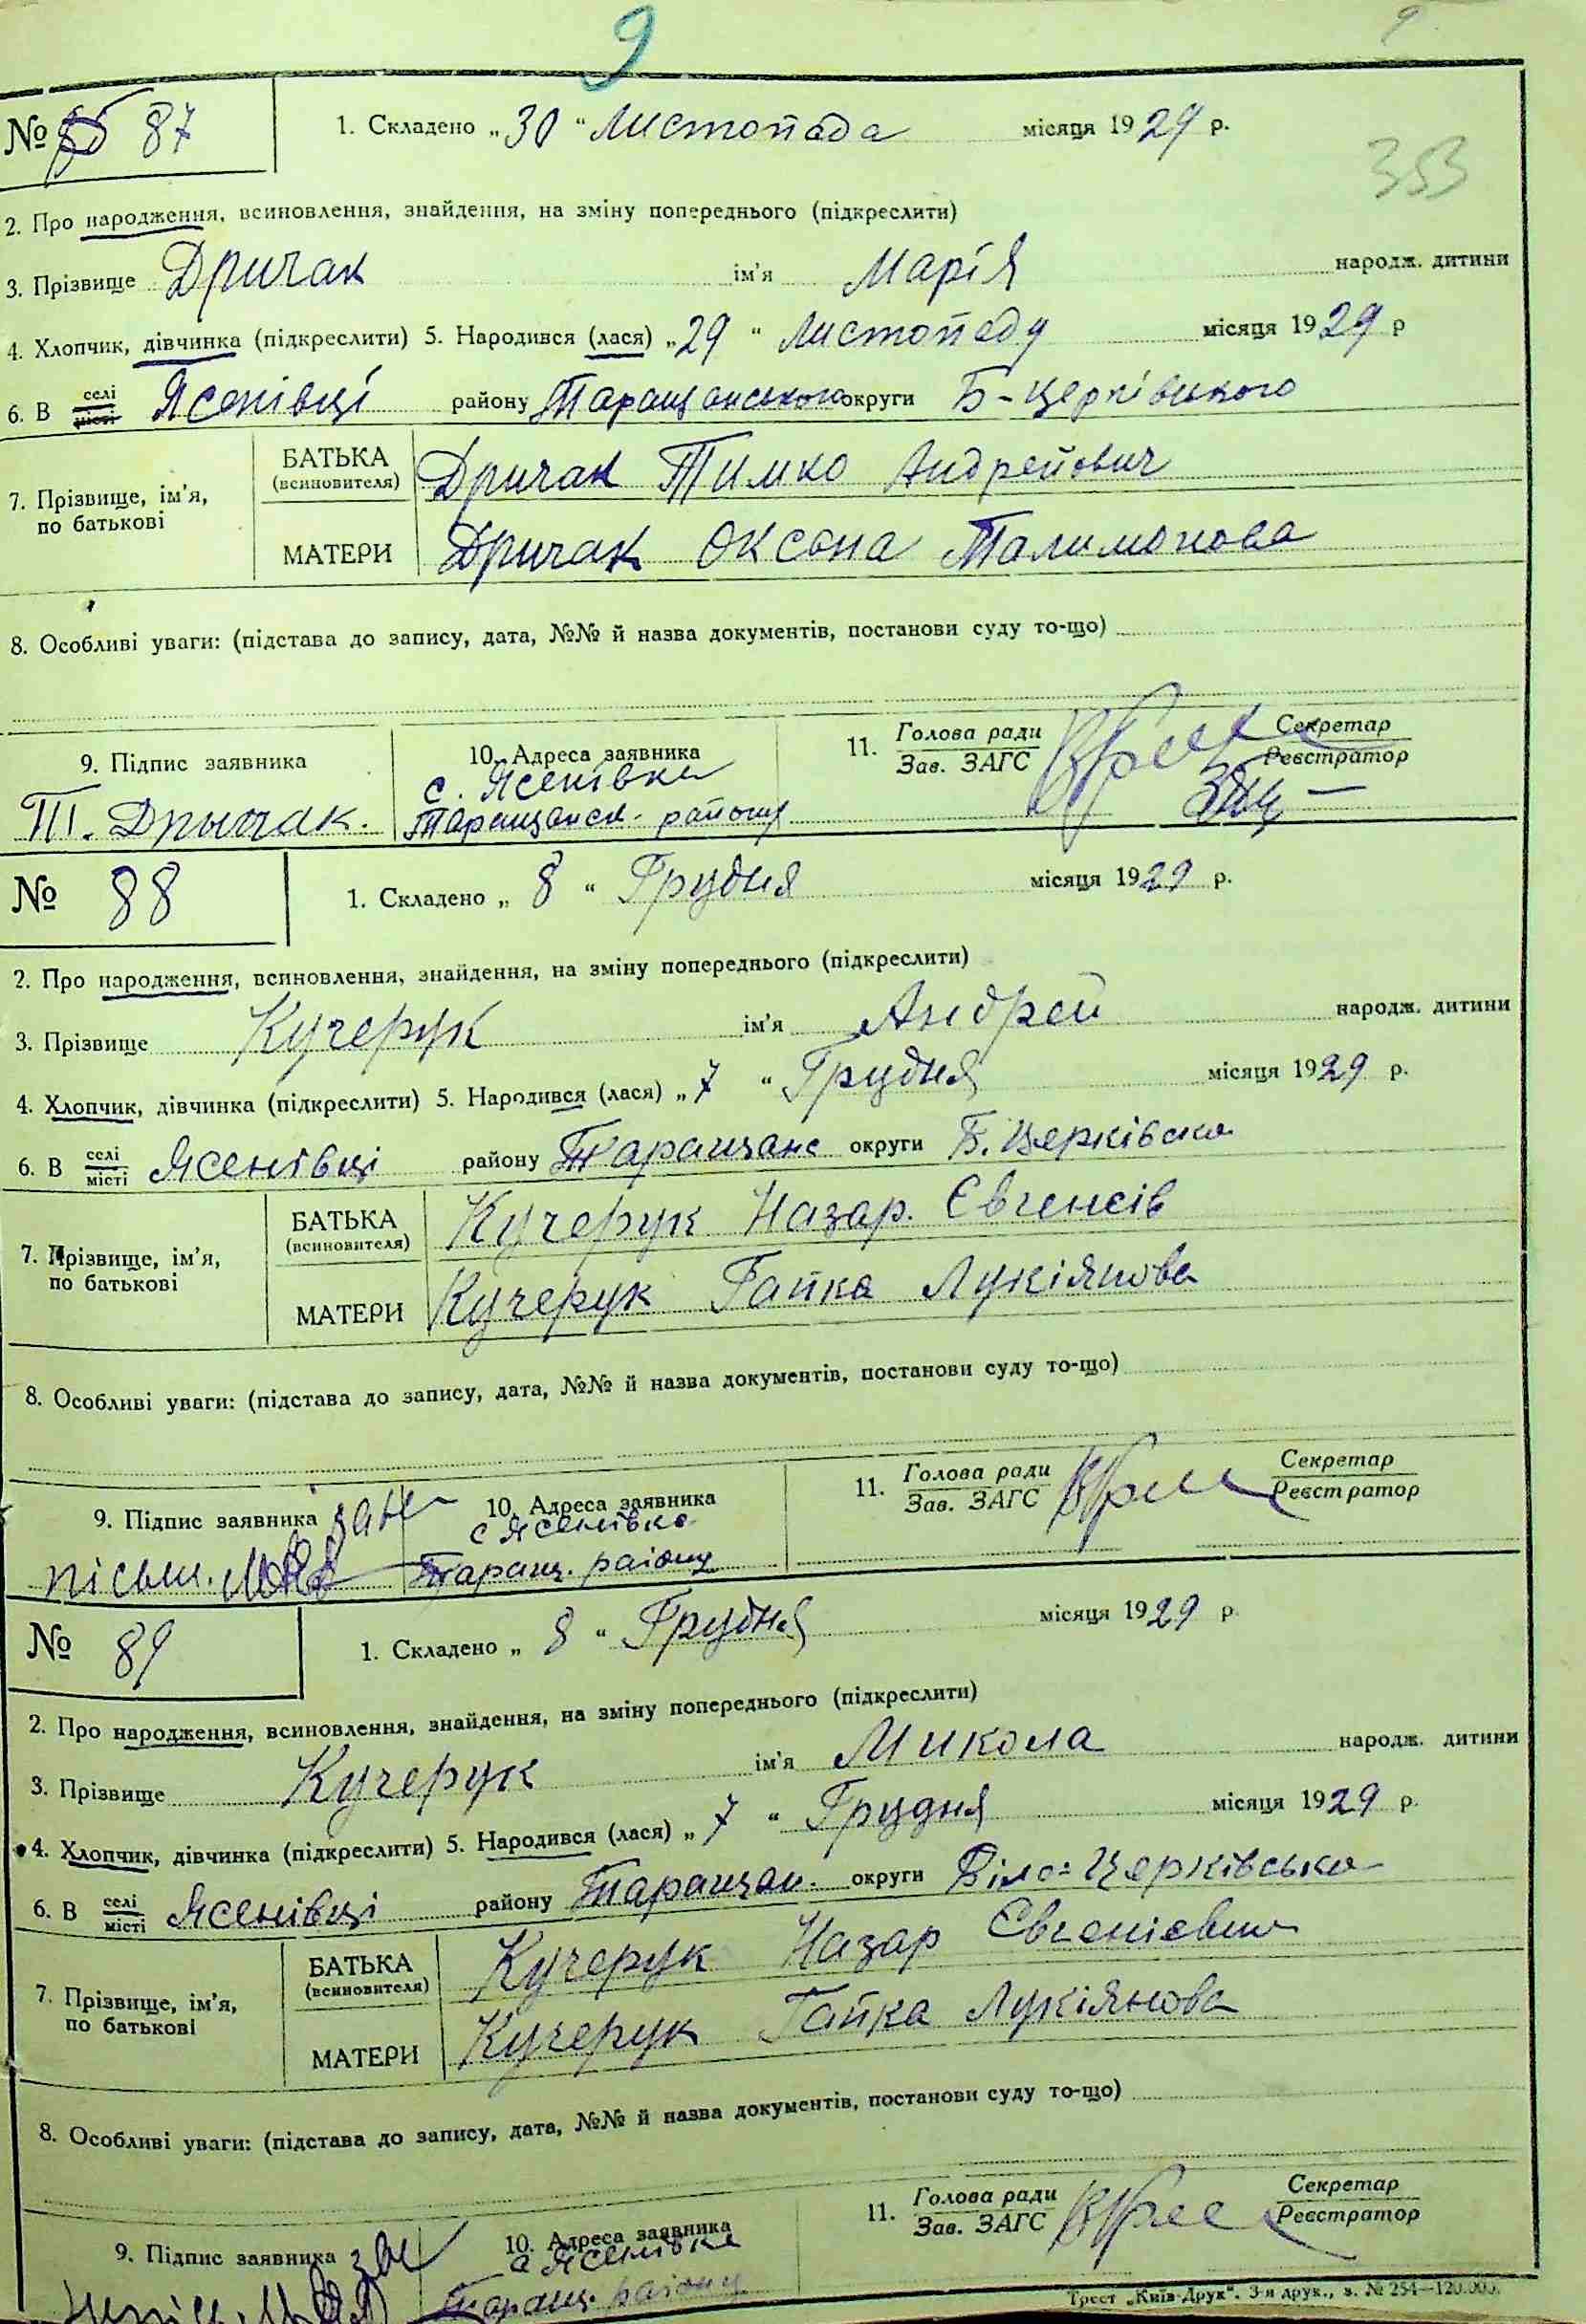 9
9
№ 87
1. Складено „30“ Листопада місяця 1929 р.
353
2. Про народження, всиновлення, знайдення, на зміну попереднього (підкреслити)
3. Прізвище Дричак ім'я Марія народж. дитини
4. Хлопчик, дівчинка (підкреслити) 5. Народився (лася) „29“ Листопаду місяця 1929 р
6. В селі місті Ясенівці району Таращанського округи Б-Церківського
7. Прізвище, ім'я, по батькові
БАТЬКА (всиновителя) Дричак Тимко Андрейович
МАТЕРИ Дричак Оксана Талимонова
8. Особливі уваги: (підстава до запису, дата, №№ й назва документів, постанови суду то-що)
9. Підпис заявника
Т. Дрычак.
10. Адреса заявника
с. Ясенівка
Таращанск. району
11. Голова ради Зав. ЗАГС
Секретар Реєстратор
№ 88
1. Складено „8“ Грудня місяця 1929 р.
2. Про народження, всиновлення, знайдення, на зміну попереднього (підкреслити)
3. Прізвище Кучерук ім'я Андрей народж. дитини
4. Хлопчик, дівчинка (підкреслити) 5. Народився (лася) „7“ Грудня місяця 1929 р.
6. В селі місті Ясенівці району Таращанс округи Б. Церківська
7. Прізвище, ім'я, по батькові
БАТЬКА (всиновителя) Кучерук Назар. Євгенєів
МАТЕРИ Кучерук Гапка Лукіянова
8. Особливі уваги: (підстава до запису, дата, №№ й назва документів, постанови суду то-що)
9. Підпис заявника
пісьм.
10. Адреса заявника
с Ясенівка
Таращ. району
11. Голова ради Зав. ЗАГС
Секретар Реєстратор
№ 89
1. Складено „8“ Грудня місяця 1929 р.
2. Про народження, всиновлення, знайдення, на зміну попереднього (підкреслити)
3. Прізвище Кучерук ім'я Микола народж. дитини
4. Хлопчик, дівчинка (підкреслити) 5. Народився (лася) „7“ Грудня місяця 1929 р.
6. В селі місті Ясенівці району Таращан. округи Біло=Церківська
7. Прізвище, ім'я, по батькові
БАТЬКА (всиновителя) Кучерук Назар Євгенієвич
МАТЕРИ Кучерук Гапка Лукіянова
8. Особливі уваги: (підстава до запису, дата, №№ й назва документів, постанови суду то-що)
9. Підпис заявника
10. Адреса заявника
с Ясенівка
Таращ. району
11. Голова ради Зав. ЗАГС
Секретар Реєстратор
Трест „Київ-Друк“. 3-я друк., з. № 254—120.000.